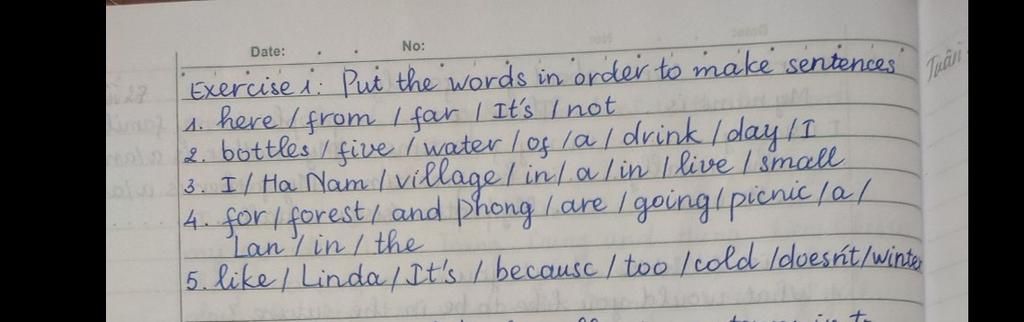 Date: . . No:
Exercise 1: Put the words in order to make sentences
1. here / from / far / It's / not
2. bottles / five / water / of / a / drink / day / I
3. I / Ha Nam / village / in / a / in / live / small
4. for / forest / and Phong / are / going / picnic / a /
Lan / in / the
5. like / Linda / It's / because / too / cold / doesn't / winter
Tuấn